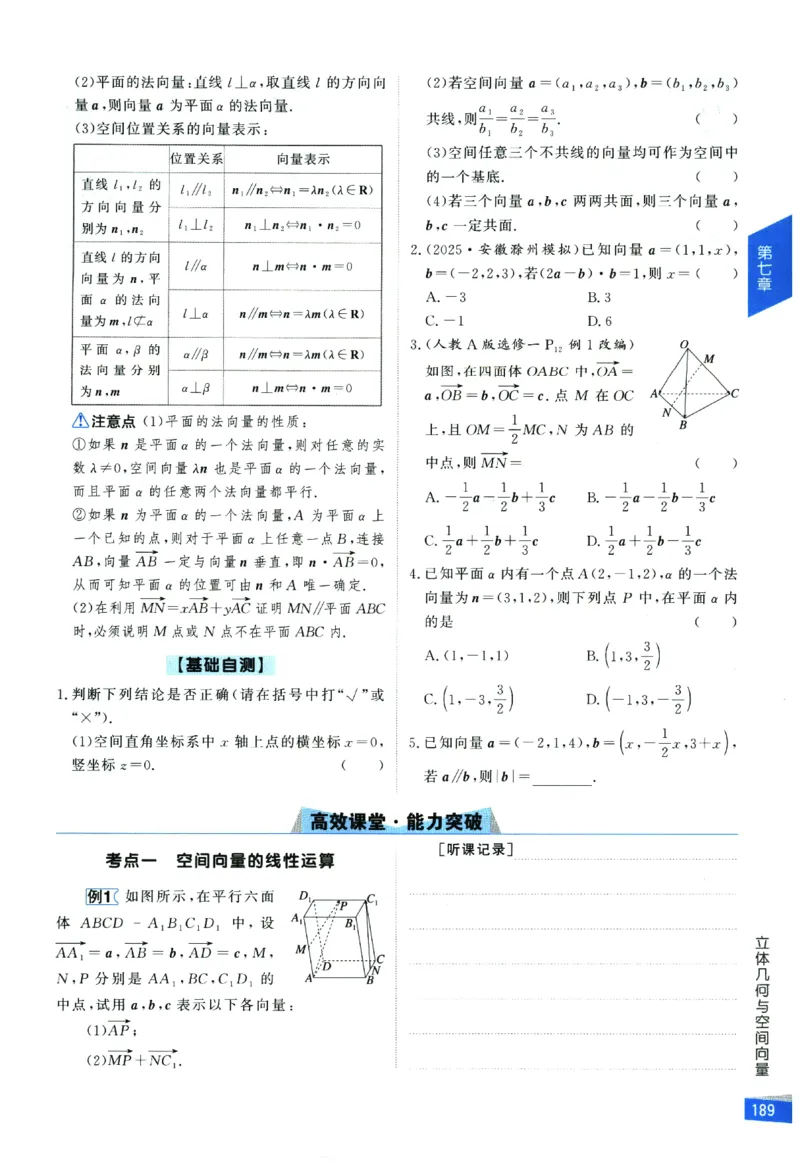 (2)平面的法向量:直线 l⊥α,取直线 l 的方向向
量a,则向量 a 为平面α的法向量.
(3)空间位置关系的向量表示:
位置关系 向量表示
直线 l₁,l₂ 的方向向量分别为 n₁,n₂
l₁∥l₂ n₁∥n₂⇔n₁=λn₂(λ∈R)
l₁⊥l₂ n₁⊥n₂⇔n₁·n₂=0
直线 l 的方向向量为 n,平面 α 的法向量为m,l⊄α
l∥α n⊥m⇔n·m=0
l⊥α n∥m⇔n=λm(λ∈R)
平面 α,β 的法向量分别为n,m
α∥β n∥m⇔n=λm(λ∈R)
α⊥β n⊥m⇔n·m=0
注意点 (1)平面的法向量的性质:
①如果 n 是平面α的一个法向量,则对任意的实
数λ≠0,空间向量λn 也是平面α的一个法向量,
而且平面α的任意两个法向量都平行.
②如果 n 为平面α的一个法向量,A 为平面α上
一个已知的点,则对于平面α上任意一点B,连接
AB,向量 \overrightarrow{AB} 一定与向量n 垂直,即 n·\overrightarrow{AB}=0,
从而可知平面α的位置可由 n 和 A 唯一确定.
(2)在利用 \overrightarrow{MN}=x\overrightarrow{AB}+y\overrightarrow{AC} 证明 MN∥平面 ABC
时,必须说明 M 点或 N 点不在平面 ABC 内.
【基础自测】
1.判断下列结论是否正确(请在括号中打“√”或
“×”).
(1)空间直角坐标系中 x 轴上点的横坐标x=0,
竖坐标z=0. ( )
(2)若空间向量 a=(a₁,a₂,a₃),b=(b₁,b₂,b₃)
共线,则\frac{a₁}{b₁}=\frac{a₂}{b₂}=\frac{a₃}{b₃}. ( )
(3)空间任意三个不共线的向量均可作为空间中
的一个基底. ( )
(4)若三个向量 a,b,c 两两共面,则三个向量 a,
b,c 一定共面. ( )
2.(2025·安徽滁州模拟)已知向量 a=(1,1,x),
b=(-2,2,3),若(2a-b)·b=1,则 x=( )
A.-3 B.3
C.-1 D.6
3.(人教 A 版选修一 P₁₂ 例 1 改编)
如图,在四面体 OABC 中,\overrightarrow{OA}=
a,\overrightarrow{OB}=b,\overrightarrow{OC}=c.点 M 在 OC
上,且 OM=\frac{1}{2}MC,N 为 AB 的
中点,则 \overrightarrow{MN}= ( )
O
M
A
C
N
B
A.-\frac{1}{2}a-\frac{1}{2}b+\frac{1}{3}c B.-\frac{1}{2}a-\frac{1}{2}b-\frac{1}{3}c
C.\frac{1}{2}a+\frac{1}{2}b+\frac{1}{3}c D.\frac{1}{2}a+\frac{1}{2}b-\frac{1}{3}c
4.已知平面α内有一个点A(2,-1,2),α的一个法
向量为n=(3,1,2),则下列点 P 中,在平面α内
的是 ( )
A.(1,-1,1) B.(1,3,\frac{3}{2})
C.(1,-3,\frac{3}{2}) D.(-1,3,-\frac{3}{2})
5.已知向量a=(-2,1,4),b=(x,-\frac{1}{2}x,3+x),
若 a∥b,则|b|=________.
高效课堂·能力突破
考点一 空间向量的线性运算
例1 如图所示,在平行六面
体 ABCD-A₁B₁C₁D₁ 中,设
\overrightarrow{AA₁}=a,\overrightarrow{AB}=b,\overrightarrow{AD}=c,M,
N,P 分别是 AA₁,BC,C₁D₁ 的
中点,试用 a,b,c 表示以下各向量:
(1)\overrightarrow{AP};
(2)\overrightarrow{MP}+\overrightarrow{NC₁}.
D₁
P
C₁
A₁
B₁
M
D
C
N
A
B
[听课记录]
第七章
立体几何与空间向量
189